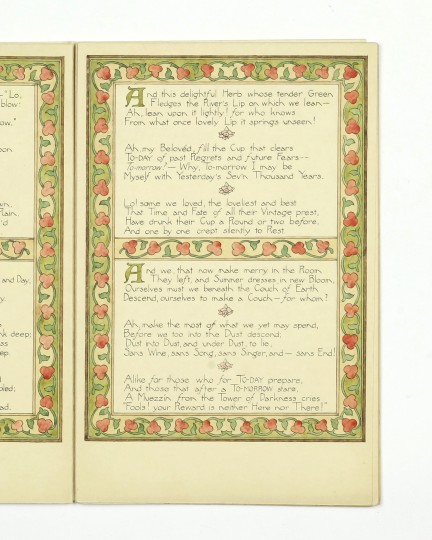 "Lo,
blow:
ow."
pon
n,
ain,
Rain.
'd
and Day,
y
nk deep;
ss
ep.
bled;
ad.
And this delightful Herb whose tender Green
Fledges the River's Lip on which we lean—
Ah, lean upon it lightly! for who knows
From what once lovely Lip it springs unseen!
Ah, my Belovéd, fill the Cup that clears
TO-DAY of past Regrets and future Fears--
To-morrow?— Why, To-morrow I may be
Myself with Yesterday's Sev'n Thousand Years.
Lo! some we loved, the loveliest and best
That Time and Fate of all their Vintage prest,
Have drunk their Cup a Round or two before,
And one by one crept silently to Rest.
And we that now make merry in the Room
They left, and Summer dresses in new Bloom,
Ourselves must we beneath the Couch of Earth
Descend, ourselves to make a Couch—for whom?
Ah, make the most of what we yet may spend,
Before we too into the Dust descend;
Dust into Dust, and under Dust, to lie,
Sans Wine, sans Song, sans Singer, and— sans End!
Alike for those who for TO-DAY prepare,
And those that after a TO-MORROW stare,
A Muezzin from the Tower of Darkness cries
"Fools! your Reward is neither Here nor There!"